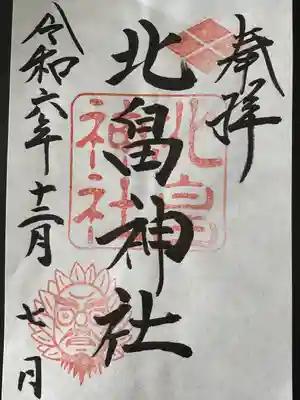 奉拝
北畠神社
北畠神社
令和六年十二月七月